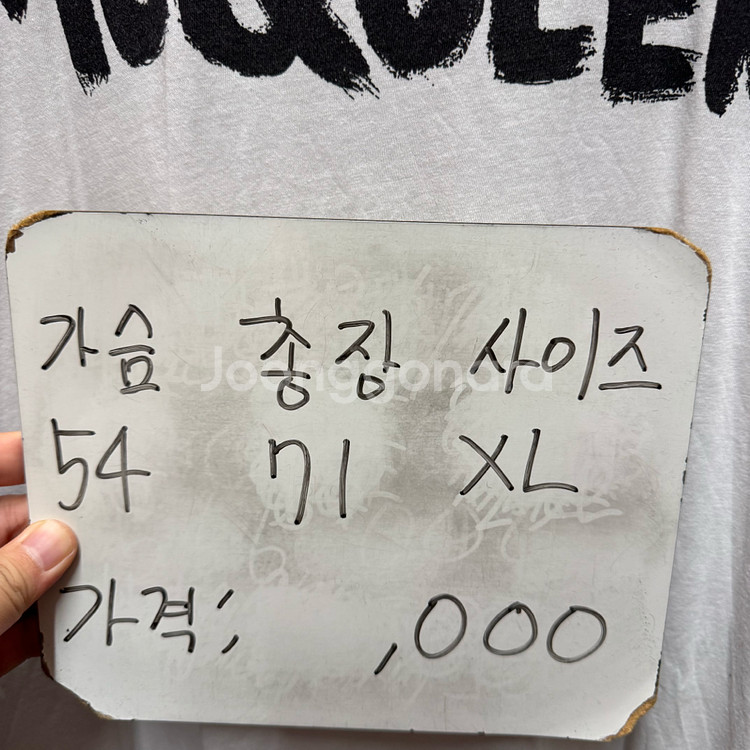 McQUEEN
가슴 총장 사이즈
Joonggonara
54 71 XL
가격; ,000